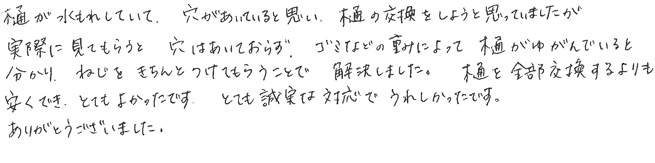 樋が水もれしていて、穴があいていると思い、樋の交換をしようと思っていましたが
実際に見てもらうと 穴はあいておらず、ゴミなどの重みによって 樋がゆがんでいると
分かり、ねじを きちんとつけてもらうことで 解決しました。 樋を全部交換するよりも
安くでき、とても よかったです、 とても 誠実な 対応で うれしかったです。
ありがとうございました。